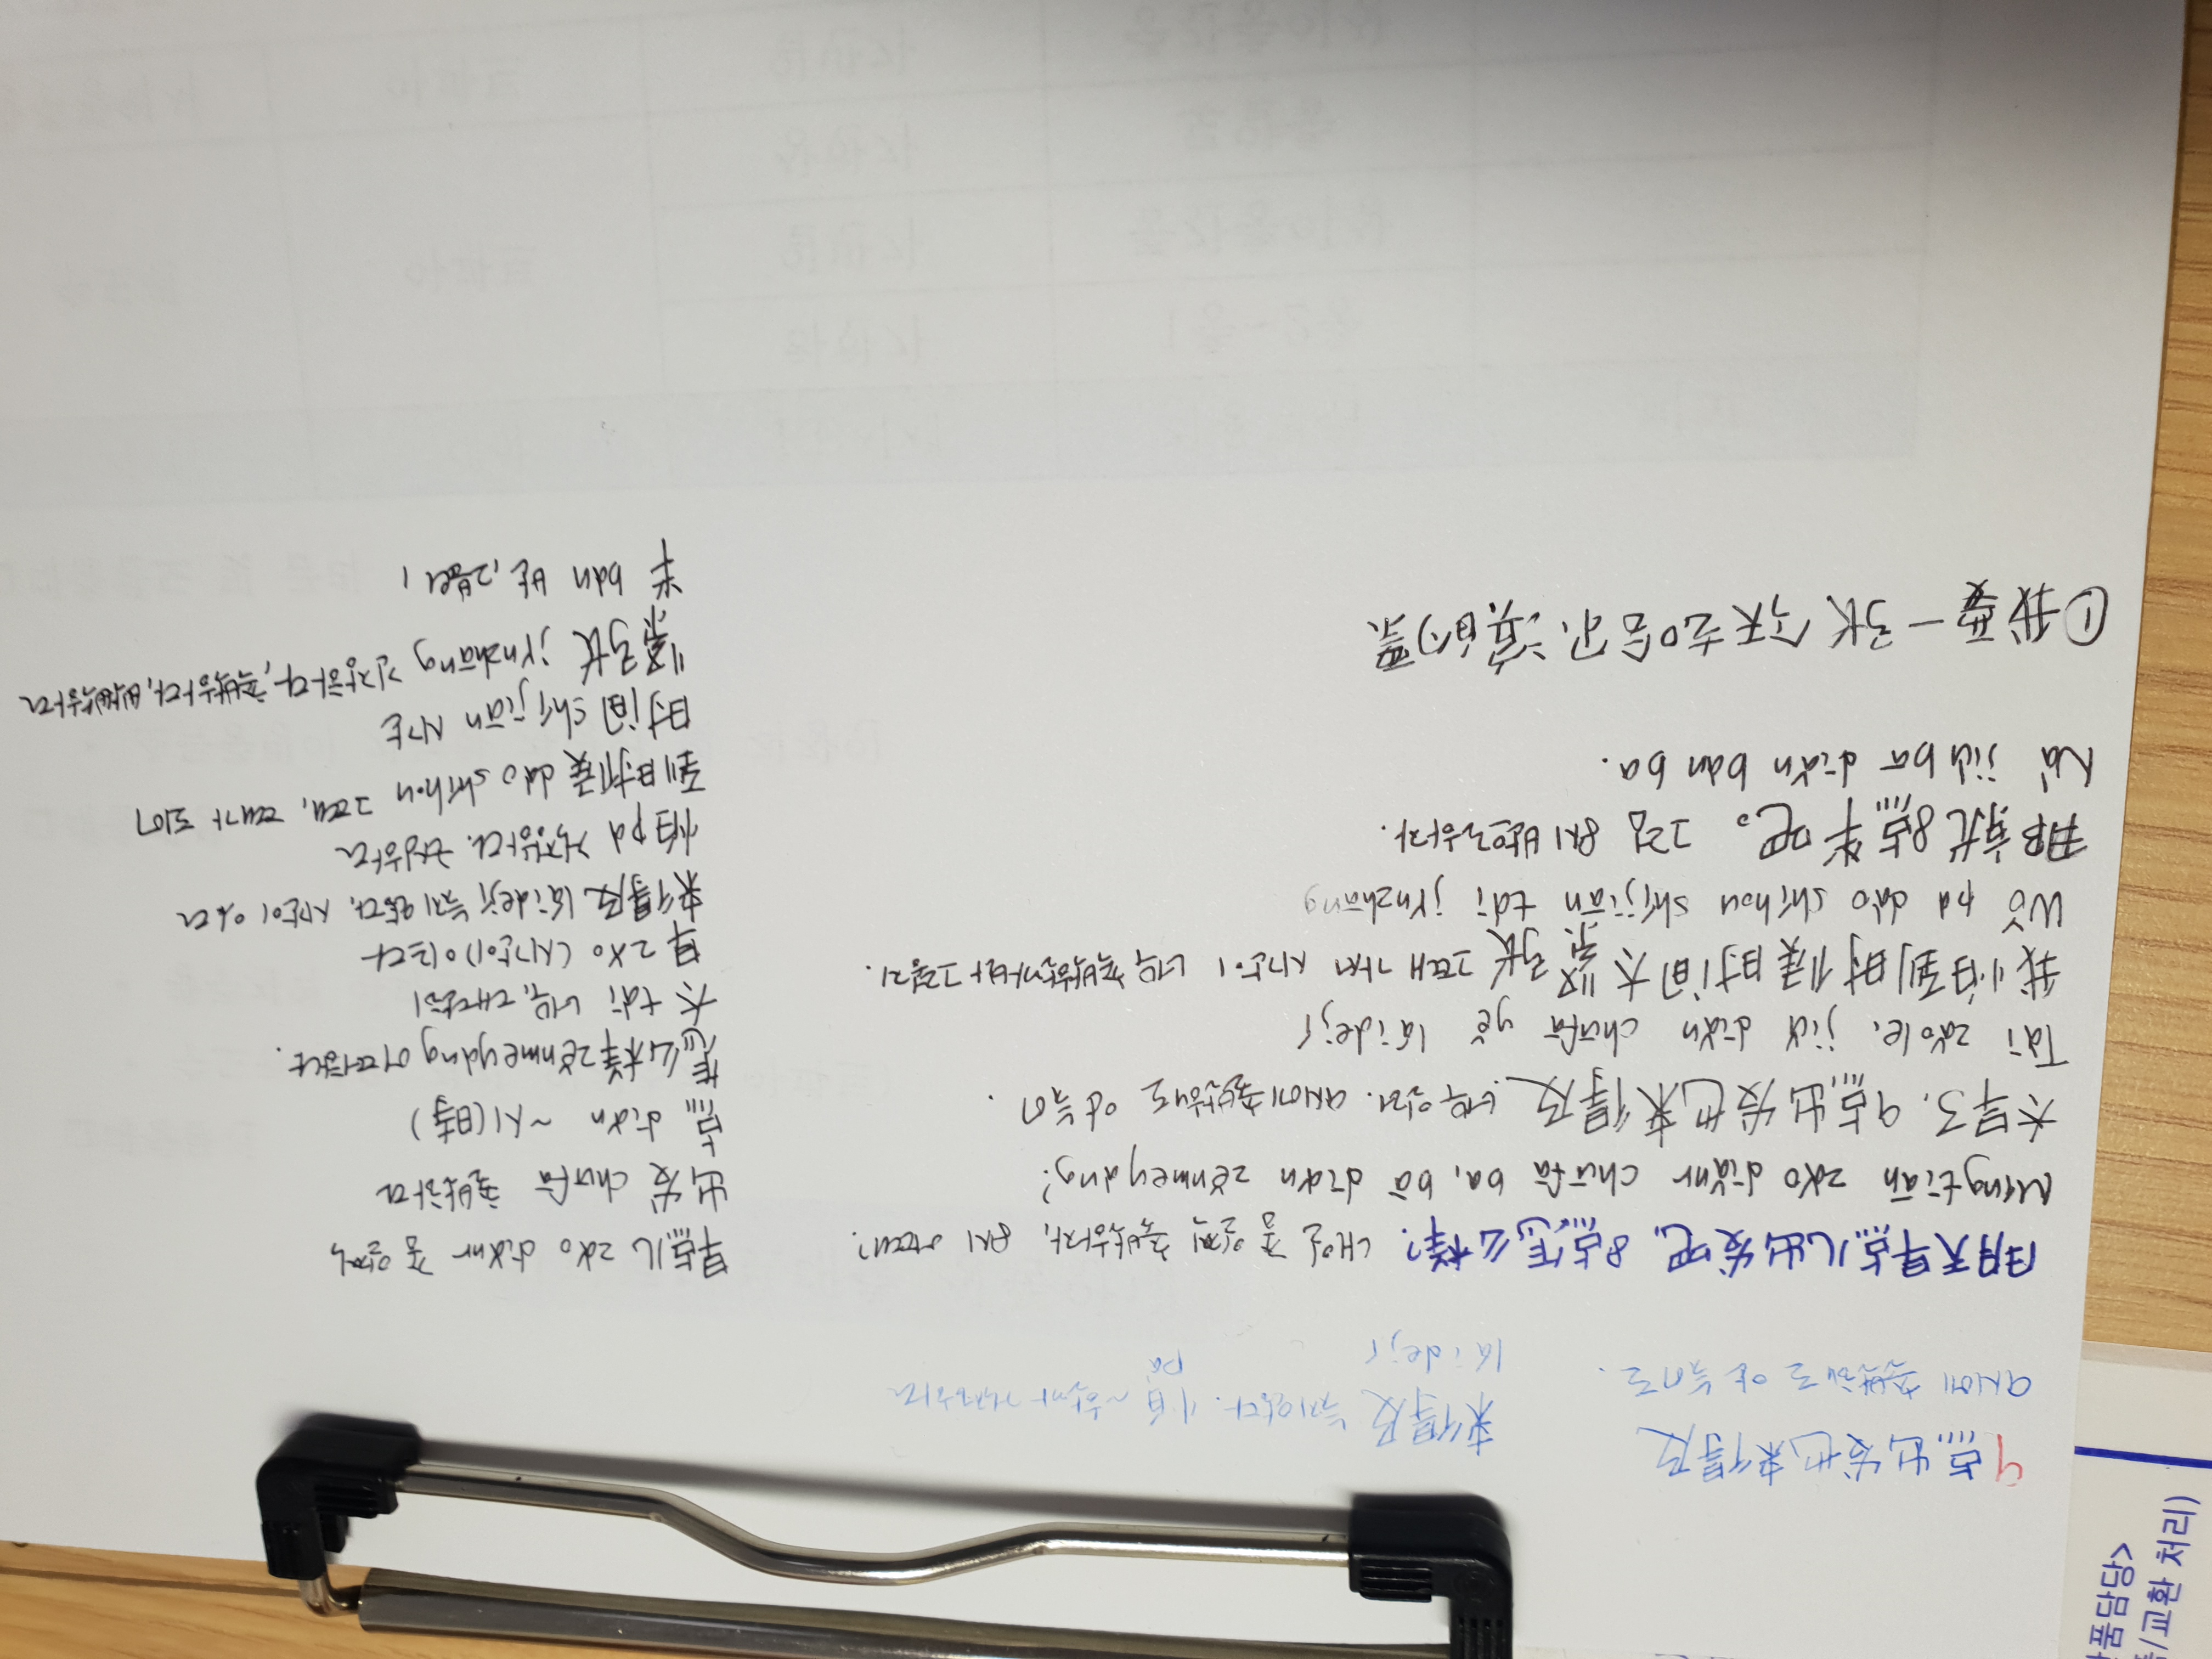 9点出发也来得及
9시에 출발해도 안 늦어요.
来得及 늦지않다. 怕 ~할까가 걱정하다
láidejí pà
明天早点儿出发吧, 8点怎么样? 내일 좀 일찍 출발하자, 8시 어때?
Míngtiān zǎo diǎnr chūfā ba, bā diǎn zěnmeyàng?
太早了, 9点出发也来得及 너무 일러. 9시에출발해도 안 늦어.
Tài zǎole, jiǔ diǎn chūfā yě láidejí
我怕到时候时间太紧张 그때 가서 시간이 너무 촉박할까봐서 그렇지.
Wǒ pà dào shíhou shíjiān tài jǐnzhāng
那就8点半吧。 그럼 8시 반으로하자.
Nà jiù bā diǎn bàn ba.
① 我要一张今天去哈尔滨的票
早点儿 zǎo diǎnr 좀 일찍
出发 chūfā 출발하다
点 diǎn ~시(時)
怎么样 zěnmeyàng 어떠한가.
太 tài 너무, 대단히
早 zǎo (시간이) 이르다
来得及 láidejí 늦지 않다, 시간이 %다
怕 pà
到时候 dào shíhou 그때, 그때가 되어
时间 shíjiān 시간
紧张 jǐnzhāng
半 bàn 반, 2분의 1
품담당>
/교환 처리)